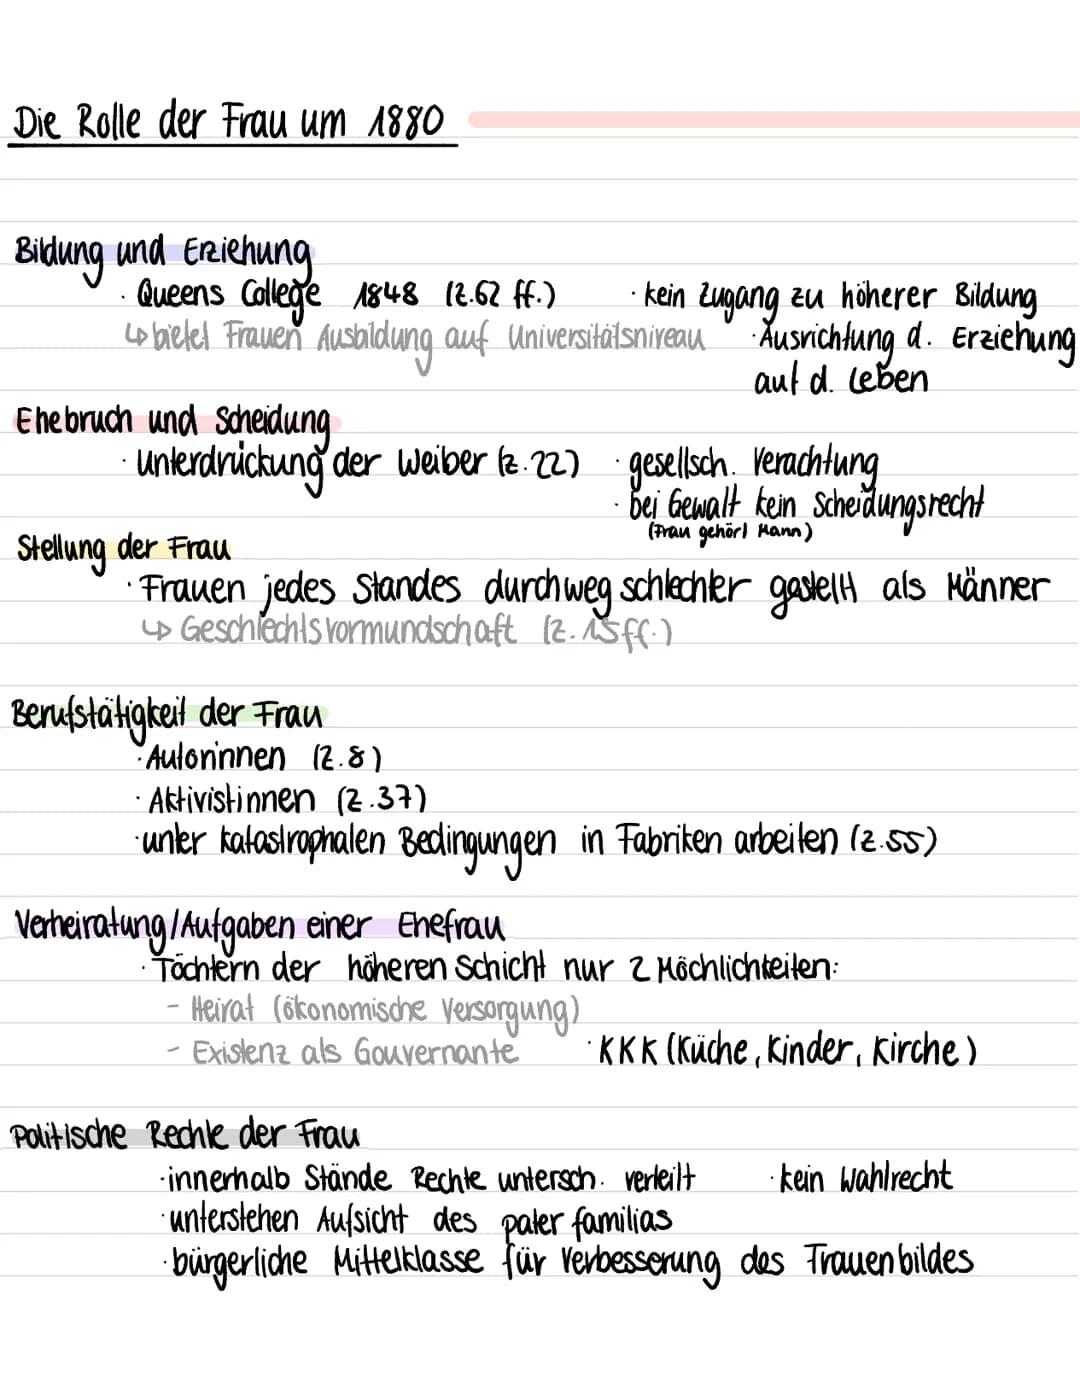 Die Rolle der Frau um 1880
Bildung und Erziehung
· Queens College 1848 (Z.62 ff.)
· kein Zugang zu höherer Bildung
↳ bietet Frauen Ausbildung auf Universitätsniveau
· Ausrichtung d. Erziehung
auf d. Leben
Ehebruch und Scheidung
· Unterdrückung der Weiber (Z.22)
· gesellsch. Verachtung
· bei Gewalt kein Scheidungsrecht
(Frau gehört Mann)
Stellung der Frau
· Frauen jedes Standes durchweg schlechter gestellt als Männer
↳ Geschlechtsvormundschaft (Z.15ff.)
Berufstätigkeit der Frau
· Autorinnen (Z.8)
· Aktivistinnen (Z.37)
· unter katastrophalen Bedingungen in Fabriken arbeiten (Z.55)
Verheiratung/Aufgaben einer Ehefrau
· Töchtern der höheren Schicht nur 2 Möchlichkeiten:
- Heirat (ökonomische Versorgung)
- Existenz als Gouvernante
· KKK (Küche, Kinder, Kirche)
Politische Rechte der Frau
· innerhalb Stände Rechte untersch. verteilt
· kein Wahlrecht
· unterstehen Aufsicht des pater familias
· bürgerliche Mittelklasse für Verbesserung des Frauenbildes